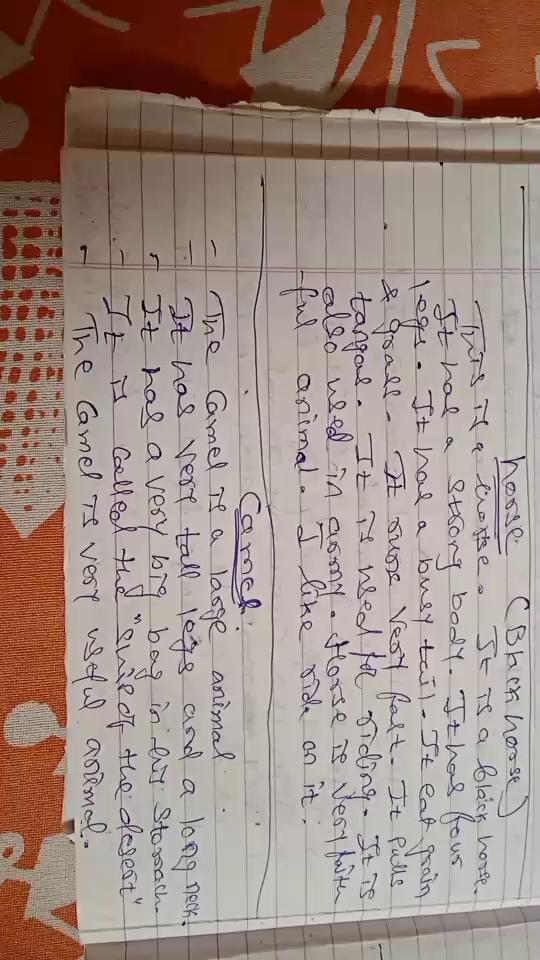 horse (Black horse)
This is a horse. It is a black horse.
It has a strong body. It has four
legs. It has a busy tail. It eat grain
& grass. It runs very fast. It pulls
tangas. It is used for riding. It is
also used in army. Horse is very faith
-ful animal. I like ride on it.
Camel
- The Camel is a large animal.
- It has very tall legs and a long neck.
- It has a very big bag in his stomach.
- It is called the "Ship of the desert"
- The Camel is very useful animal.